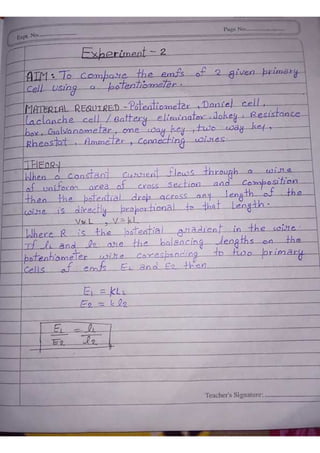 Expt. No.
Page No.
Experiment - 2
AIM : To compare the emfs of 2 given primary
cell using a potentiometer.
MATERIAL REQUIRED - Potentiometer, Daniel cell,
Laclanche cell / Battery eliminator. Jokey, Resistance
box, Galvanometer, one way key, two way key,
Rheostat, Ammeter, Connecting wires
THEORY
When a constant current flows through a wire
of uniform area of cross section and composition
then the potential drop across any length of the
wire is directly proportional to that length.
V∝L , V = kL
Where R is the potential gradient in the wire
If l1 and l2 are the balancing lengths on the
potentiometer wire corresponcing to two primary
cells of emfs E1 and E2 then
E1 = kL1
E2 = k l2
E1/E2 = l1/l2
Teacher's Signature: